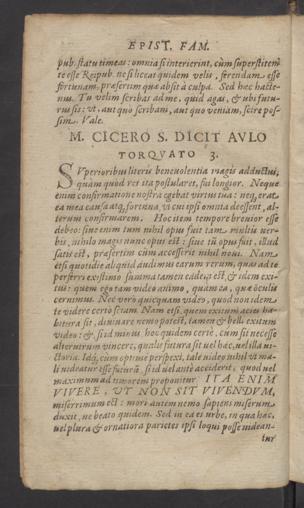 EPIST. FAM.
pub. statu timeas: omnia si interierint, cùm superstitem
te esse Reipub. ne si liceat quidem velis, ferendam esse
fortunam, præsertim quæ absit à culpa. Sed hæc hacte-
nus. Tu velim scribas ad me, quid agas, & ubi futu-
rus sis: vt, aut quò scribam, aut quo veniam, scire pos-
sim. Vale.
M. CICERO S. DICIT AVLO
TORQVATO 3.
SVperioribus literis benevolentia magis adductus,
quàm quòd res ita postularet, fui longior. Neque
enim confirmatione nostra egebat virtus tua: neq; erat
ea mea causa atq; fortuna, vt cui ipsi omnia deessent, al-
terum confirmarem. Hoc item tempore brevior esse
debeo: sive enim tum nihil opus fuit tam multis ver-
bis, nihilo magis nunc opus est: sive tũ opus fuit, illud
satis est, præsertim cùm accesserit nihil novi. Nam
etsi quotidie aliquid audimus earum rerum, quas ad te
perferri existimo: summa tamen eadẽ est, & idem exi-
tus: quem ego tam video animo, quàm ea, quæ oculis
cernimus. Nec verò quicquam video, quod non idem
te videre certò sciam. Nam etsi, quem exitum acies ha-
bitura sit, divinare nemo potest, tamen & belli exitum
video: & si id minus, hoc quidem certè, cum sit necesse
alterutrum vincere, qualis futura sit vel hæc, vel illa vi-
ctoria. Idq; cùm optimè perspexi, tale video nihil vt ma-
li videatur esse futurũ, si id vel antè acciderit, quod vel
maximum ad timorem proponitur. ITA ENIM
VIVERE, VT NON SIT VIVENDVM,
miserrimum est: mori autem nemo sapiens miserum
duxit, ne beato quidem. Sed in ea es urbe, in qua hæc,
vel plura & ornatiora parietes ipsi loqui posse videan-
tur